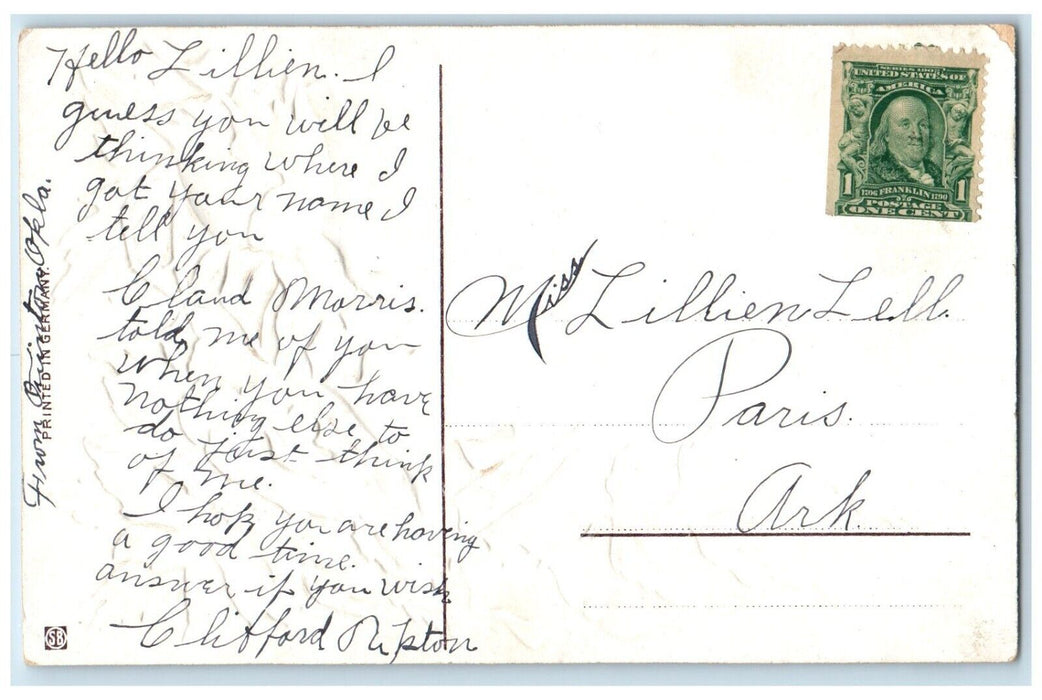 Hello Lillien. I
guess you will be
thinking where I
got your name I
tell you
Claud Morris.
told me of you
when you have
nothing else to
do just think
of me.
I hop you are having
a good time.
answer if you wish
Clifford Ripton
From Okla.
PRINTED IN GERMANY.
SB
SERIES 1902
UNITED STATES OF
AMERICA
1706 FRANKLIN 1790
1 POSTAGE 1
ONE CENT
Miss Lillien Lell.
Paris.
Ark.